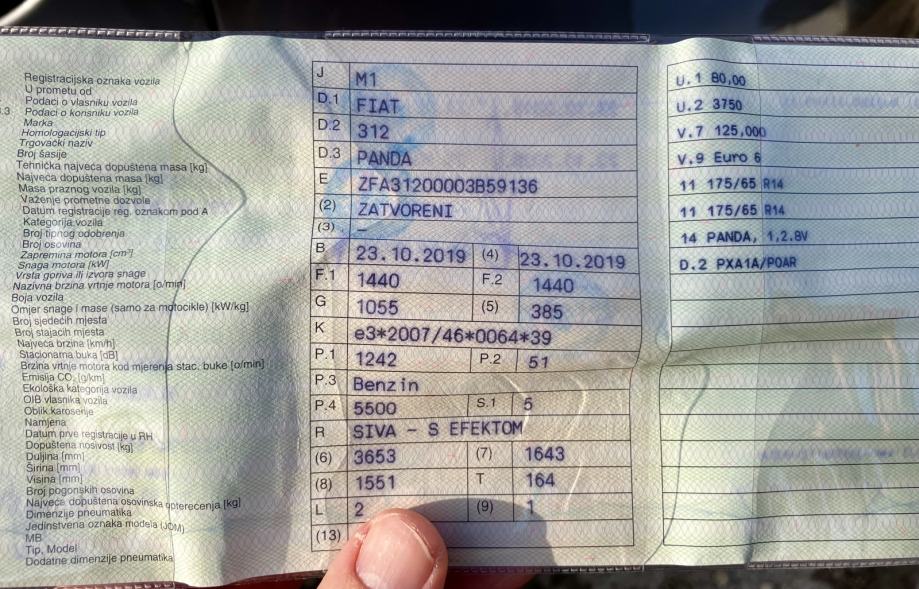 Registracijska oznaka vozila
U prometu od
Podaci o vlasniku vozila
.3 Podaci o korisniku vozila
Marka
Homologacijski tip
Trgovački naziv
Broj šasije
Tehnička najveća dopuštena masa [kg]
Najveća dopuštena masa [kg]
Masa praznog vozila [kg]
Važenje prometne dozvole
Datum registracije reg. oznakom pod A
Kategorija vozila
Broj tipnog odobrenja
Broj osovina
Zapremina motora [cm³]
Snaga motora [kW]
Vrsta goriva ili izvora snage
Nazivna brzina vrtnje motora [o/min]
Boja vozila
Omjer snage i mase (samo za motocikle) [kW/kg]
Broj sjedećih mjesta
Broj stajaćih mjesta
Najveća brzina [km/h]
Stacionarna buka [dB]
Brzina vrtnje motora kod mjerenja stac. buke [o/min]
Emisija CO₂ [g/km]
Ekološka kategorija vozila
OIB vlasnika vozila
Oblik karoserije
Namjena
Datum prve registracije u RH
Dopuštena nosivost [kg]
Duljina [mm]
Širina [mm]
Visina [mm]
Broj pogonskih osovina
Najveće dopuštena osovinska opterećenja [kg]
Dimenzije pneumatika
Jedinstvena oznaka modela (JOM)
MB
Tip, Model
Dodatne dimenzije pneumatika
J M1
D.1 FIAT
D.2 312
D.3 PANDA
E ZFA31200003B59136
(2) ZATVORENI
(3) –
B 23.10.2019 (4) 23.10.2019
F.1 1440 F.2 1440
G 1055 (5) 385
K e3*2007/46*0064*39
P.1 1242 P.2 51
P.3 Benzin
P.4 5500 S.1 5
R SIVA - S EFEKTOM
(6) 3653 (7) 1643
(8) 1551 T 164
L 2 (9) 1
(13)
U.1 80,00
U.2 3750
V.7 125,000
V.9 Euro 6
11 175/65 R14
11 175/65 R14
14 PANDA, 1,2.8V
D.2 PXA1A/POAR